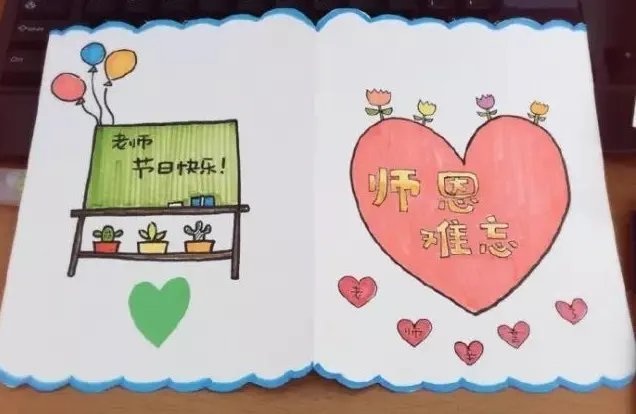 老师
节日快乐!
师恩
难忘
老师辛苦了